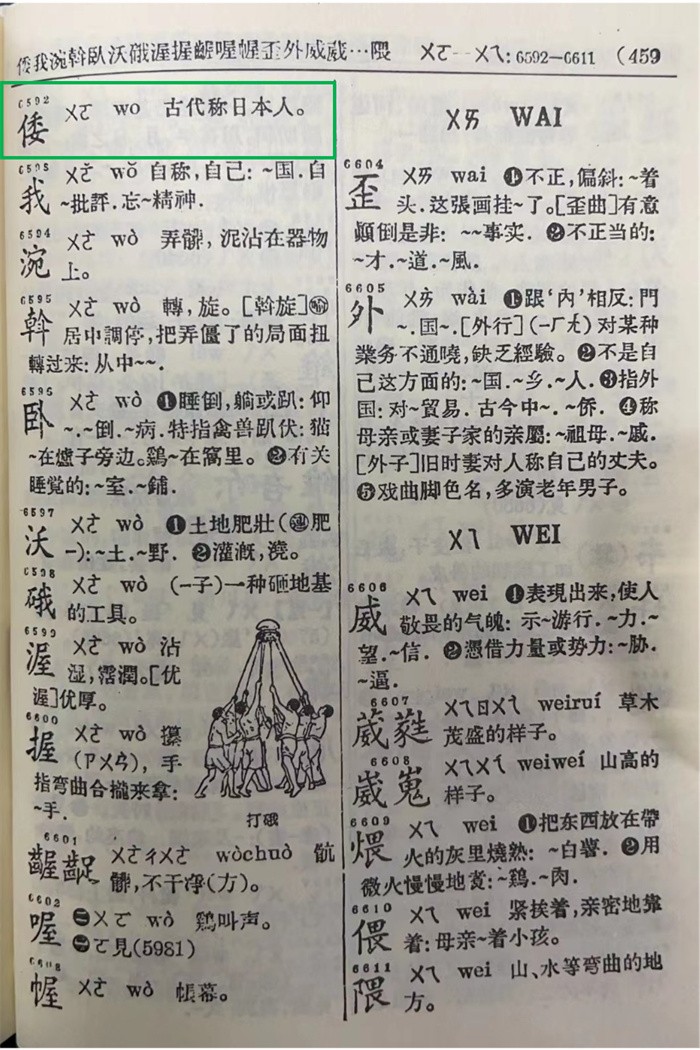 倭我涴斡臥沃硪渥握齷喔幄歪外威葳…隈 ㄨㄛ—ㄨㄟ: 6592—6611 (459
6592
倭 ㄨㄛ wo 古代称日本人。
我 ㄨㄛˇ wǒ 自称,自己: ~国.自
~批評.忘~精神.
6594
涴 ㄨㄛˋ wò 弄髒, 泥沾在器物
上。
6595
斡 ㄨㄛˋ wò 轉,旋。[斡旋]㊗
居中調停,把弄僵了的局面扭
轉过来: 从中~~.
卧 ㄨㄛˋ wò ❶睡倒,躺或趴: 仰
~.~倒.~病.特指禽兽趴伏: 猫
~在爐子旁边。鷄~在窩里。❷有关
睡觉的: ~室.~鋪.
6597
沃 ㄨㄛˋ wò ❶土地肥壯(㊣肥
—):~土.~野. ❷灌漑,澆。
6598
硪 ㄨㄛˋ wò (—子)一种砸地基
的工具。
6599
渥 ㄨㄛˋ wò 沾
湿,霑潤。[优
渥]优厚。
6600
握 ㄨㄛˋ wò 攥
(ㄗㄨㄢˋ), 手
指弯曲合攏来拿:
~手.
打硪
6601
齷齪 ㄨㄛˋㄔㄨㄛˋ wòchuò 骯
髒,不干净(方)。
6602
喔 ㊀ㄨㄛ wo 鷄叫声。
㊁ㄛ見(5981)
幄 ㄨㄛˋ wò 帳幕。
ㄨㄞ WAI
6604
歪 ㄨㄞ wai ❶不正,偏斜: ~着
头.这張画挂~了。[歪曲]有意
顛倒是非: ~~事实. ❷不正当的:
~才.~道.~風.
6605
外 ㄨㄞˋ wài ❶跟‘内’相反: 門
~.国~.[外行](—ㄏㄤˊ) 对某种
業务不通曉,缺乏經驗。❷不是自
己这方面的: ~国.~乡.~人.❸指外
国: 对~貿易. 古今中~.~侨. ❹称
母亲或妻子家的亲屬: ~祖母.~戚.
[外子]旧时妻对人称自己的丈夫。
❺戏曲脚色名,多演老年男子。
ㄨㄟ WEI
6606
威 ㄨㄟ wei ❶表現出来,使人
敬畏的气魄: 示~游行.~力.~
望.~信. ❷憑借力量或势力: ~胁.
~逼.
6607
葳蕤 ㄨㄟㄖㄨㄟˊ weiruí 草木
茂盛的样子。
6608
崴嵬 ㄨㄟㄨㄟˊ weiwéi 山高的
样子。
6609
煨 ㄨㄟ wei ❶把东西放在帶
火的灰里燒熟: ~白薯. ❷用
微火慢慢地煮: ~鷄.~肉.
6610
偎 ㄨㄟ wei 紧挨着,亲密地靠
着: 母亲~着小孩。
6611
隈 ㄨㄟ wei 山、水等弯曲的地
方。